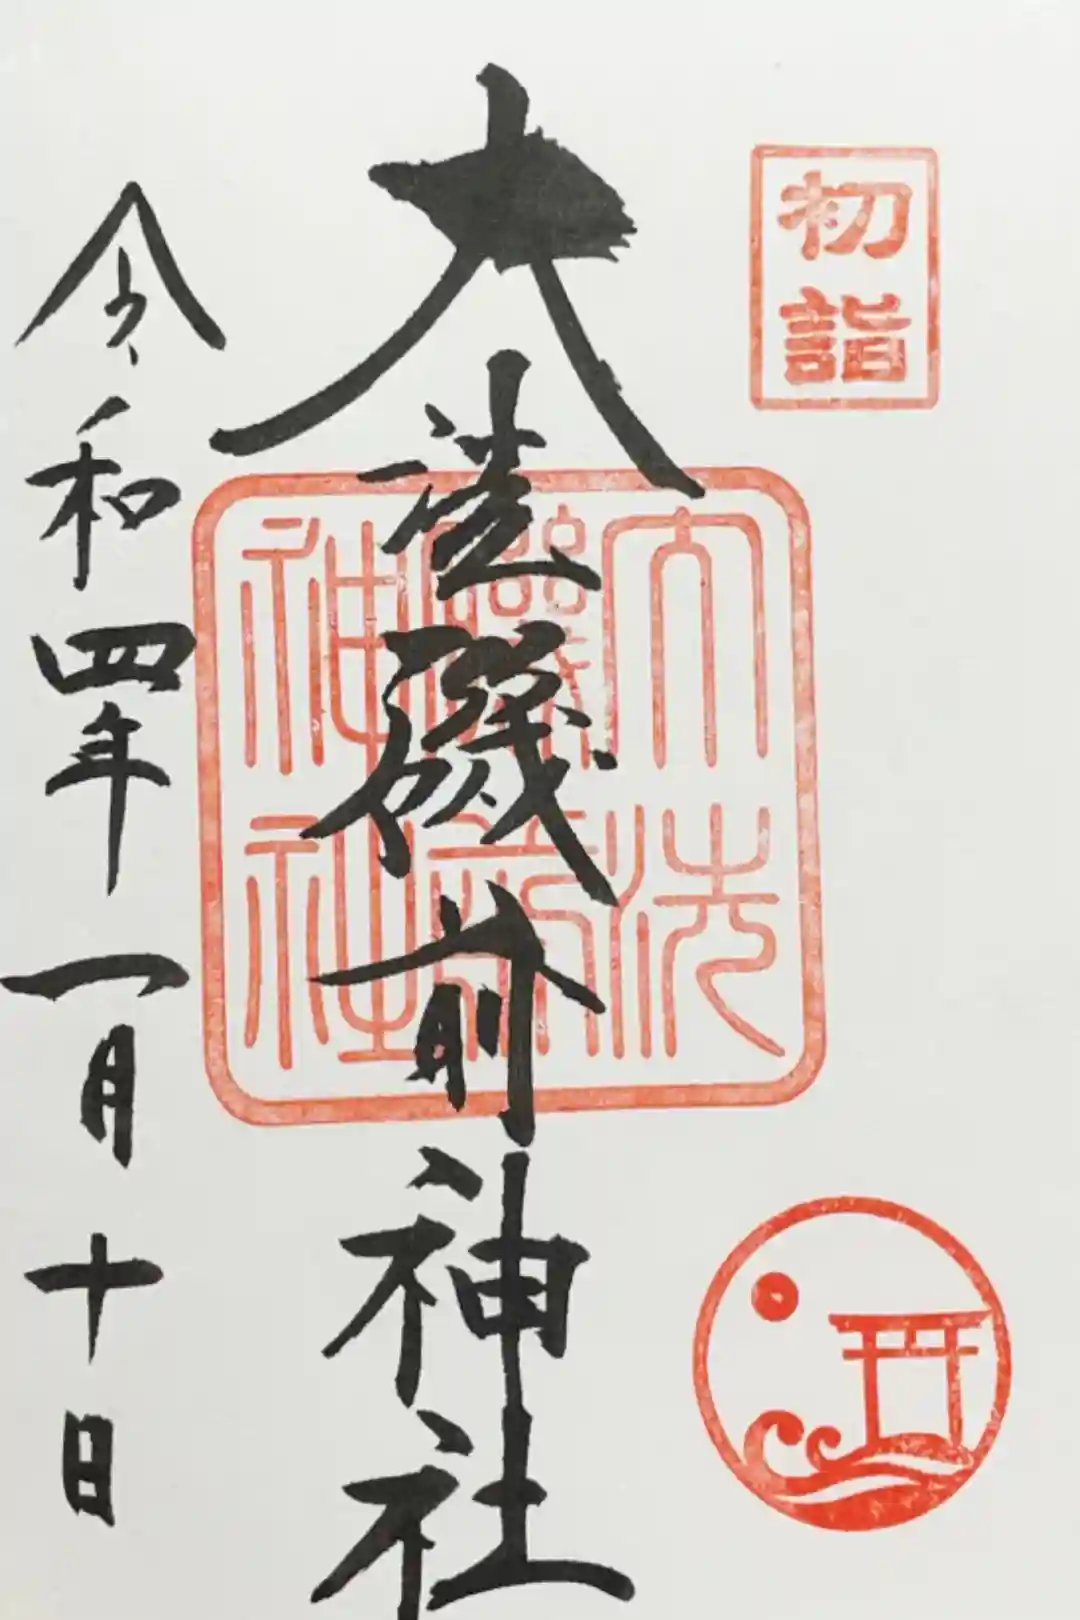 初詣
大洗磯前神社
大洗
磯前
神社
令和四年一月十日